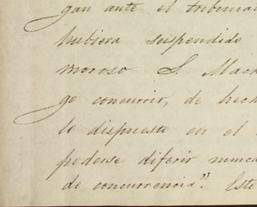 gan ante el tribunal
hubiera suspendido
moroso S. Mac
go concurrir, de hech
lo dispuesto en el
poderse diferir nunca
de concurrencia". Este